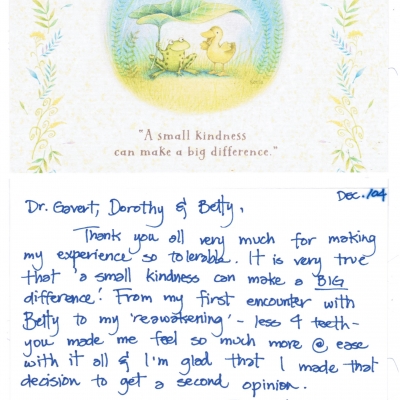 "A small kindness
can make a big difference."
Dec. /04
Dr. Gavert, Dorothy & Betty,
Thank you all very much for making
my experience so tolerable. It is very true
that 'a small kindness can make a BIG
difference'! From my first encounter with
Betty to my 'reawakening' - less 4 teeth -
you made me feel so much more @ ease
with it all & I'm glad that I made that
decision to get a second opinion.